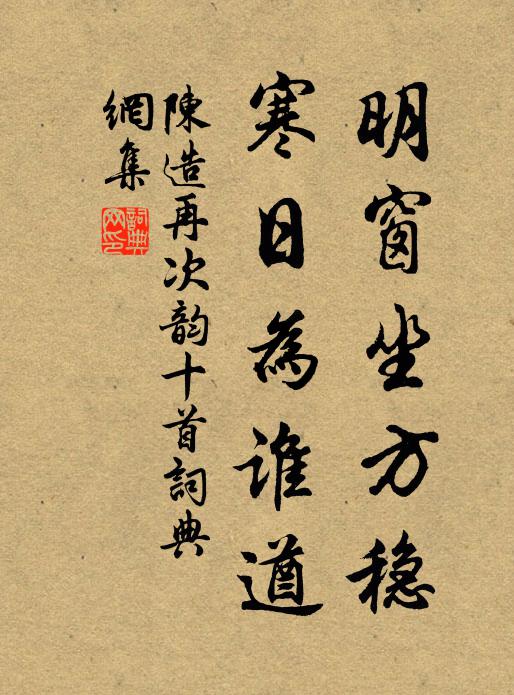 明窗坐方稳
寒日為誰遒
陳造再次韵十首詞典
網集
詞典網印